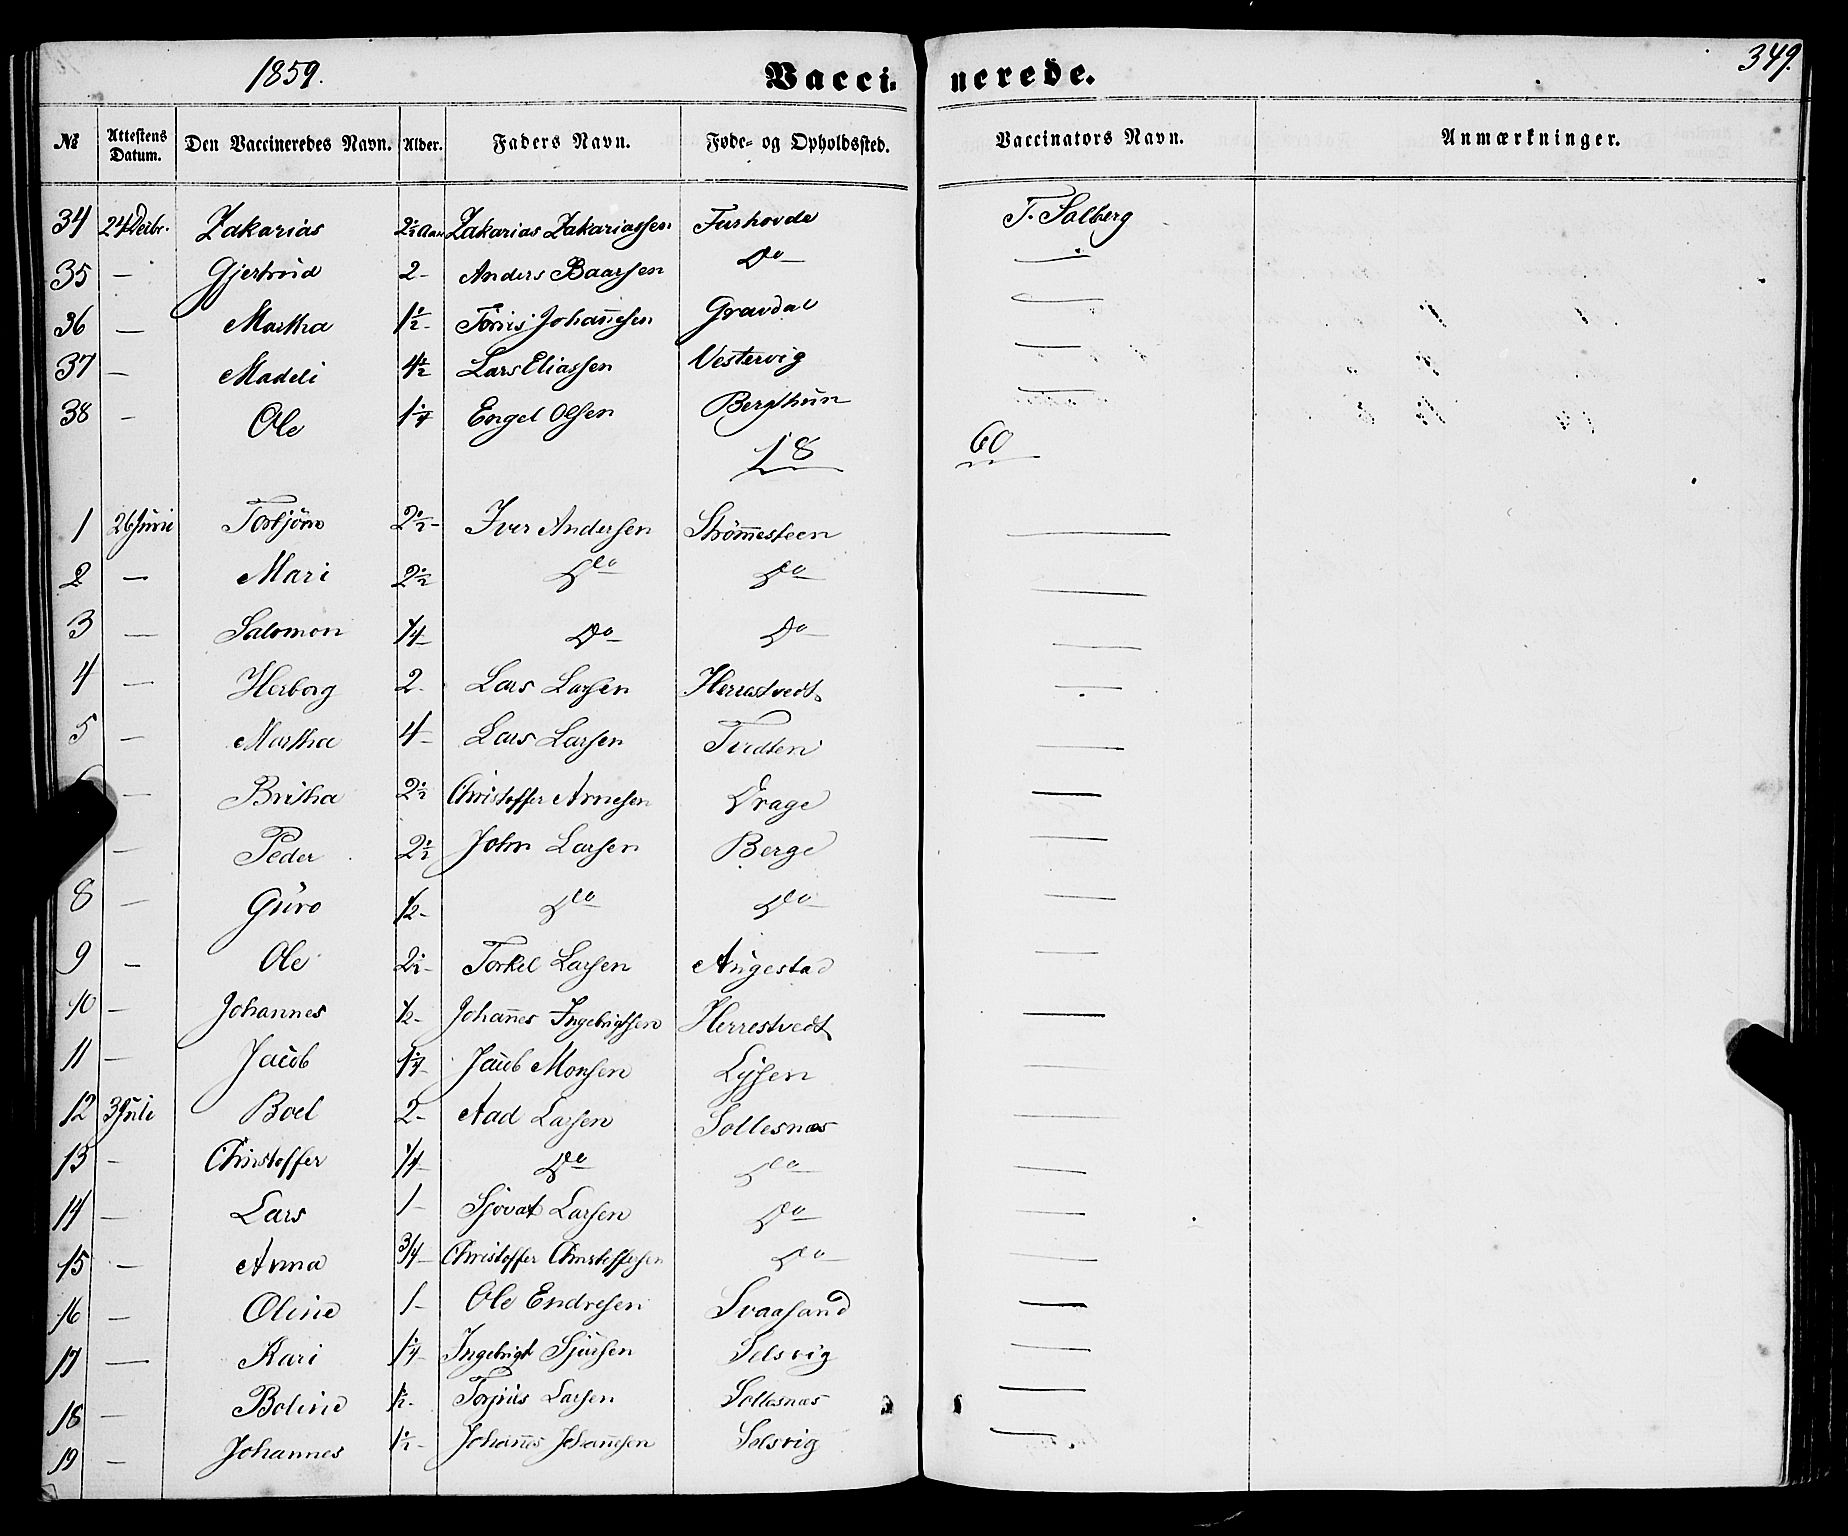 1859. Vacci- nerede. 349.
№ Attestens Datum. Den Vaccineredes Navn. Alder. Faders Navn. Føde- og Opholdssted. Vaccinators Navn. Anmærkninger.
34 24 Decbr. Zakarias 2½ Aar Zakarias Zakariassen Furhovde T. Solberg
35 — Gjertrud 2 - Anders Baarsen Do — —
36 — Martha 1½ - Johannesen Gravdal —
37 — Madeli 4½ Lars Eliassen Vestervig —
38 - Ole 1¼ Engel Olsen Bergthun —
18 60
1 26 Juni Torbjörn 2½ - Iver Andersen Strömmesteen —
2 — Mari 2½ Do — Do — —
3 — Salomon ¼ - Do — Do — —
4 — Herborg 2 - Lars Larsen Herrestvedt —
5 — Martha 4 - Lars Larsen —
— Britha 2½ Christoffer Arnesen Drage —
— Peder 2½ John Larsen Berge —
8 — Guro ½ - Do — Do — —
9 — Ole 2½ - Torkel Larsen Augestad —
10 - Johannes ½ - Johannes Ingebrigtsen Herrestvedt —
11 — Jacob 1¼ - Jacob Monsen Lysen —
12 3 Juli Boel 2 - Aad Larsen Sollesnæs —
13 - Christoffer ¼ - Do Do — —
14 — Lars 1 - Sjovat Larsen Do — —
15 — Anna ¾ - Christoffer Christoffersen Do — —
16 — Oline 1 - Ole Endresen Svaasand —
17 — Kari 1¼ - Ingebrigt Sjursen Solsvig —
18 — Boline ½ - Torjus Larsen Sollesnæs —
19 — Johannes 1½ - Johannes Johannesen Solsvig —